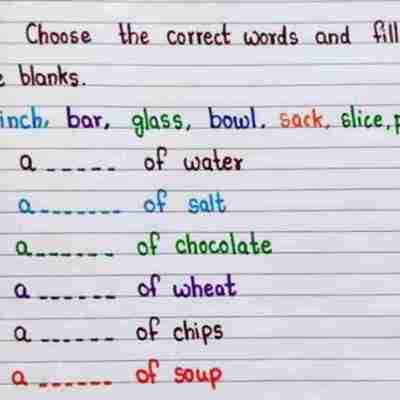 Choose the correct words and fill
blanks.
inch, bar, glass, bowl. sack, slice,
a ----- of water
a ------- of salt
a ------ of chocolate
a ------ of wheat
a ------ of chips
a ------ of soup